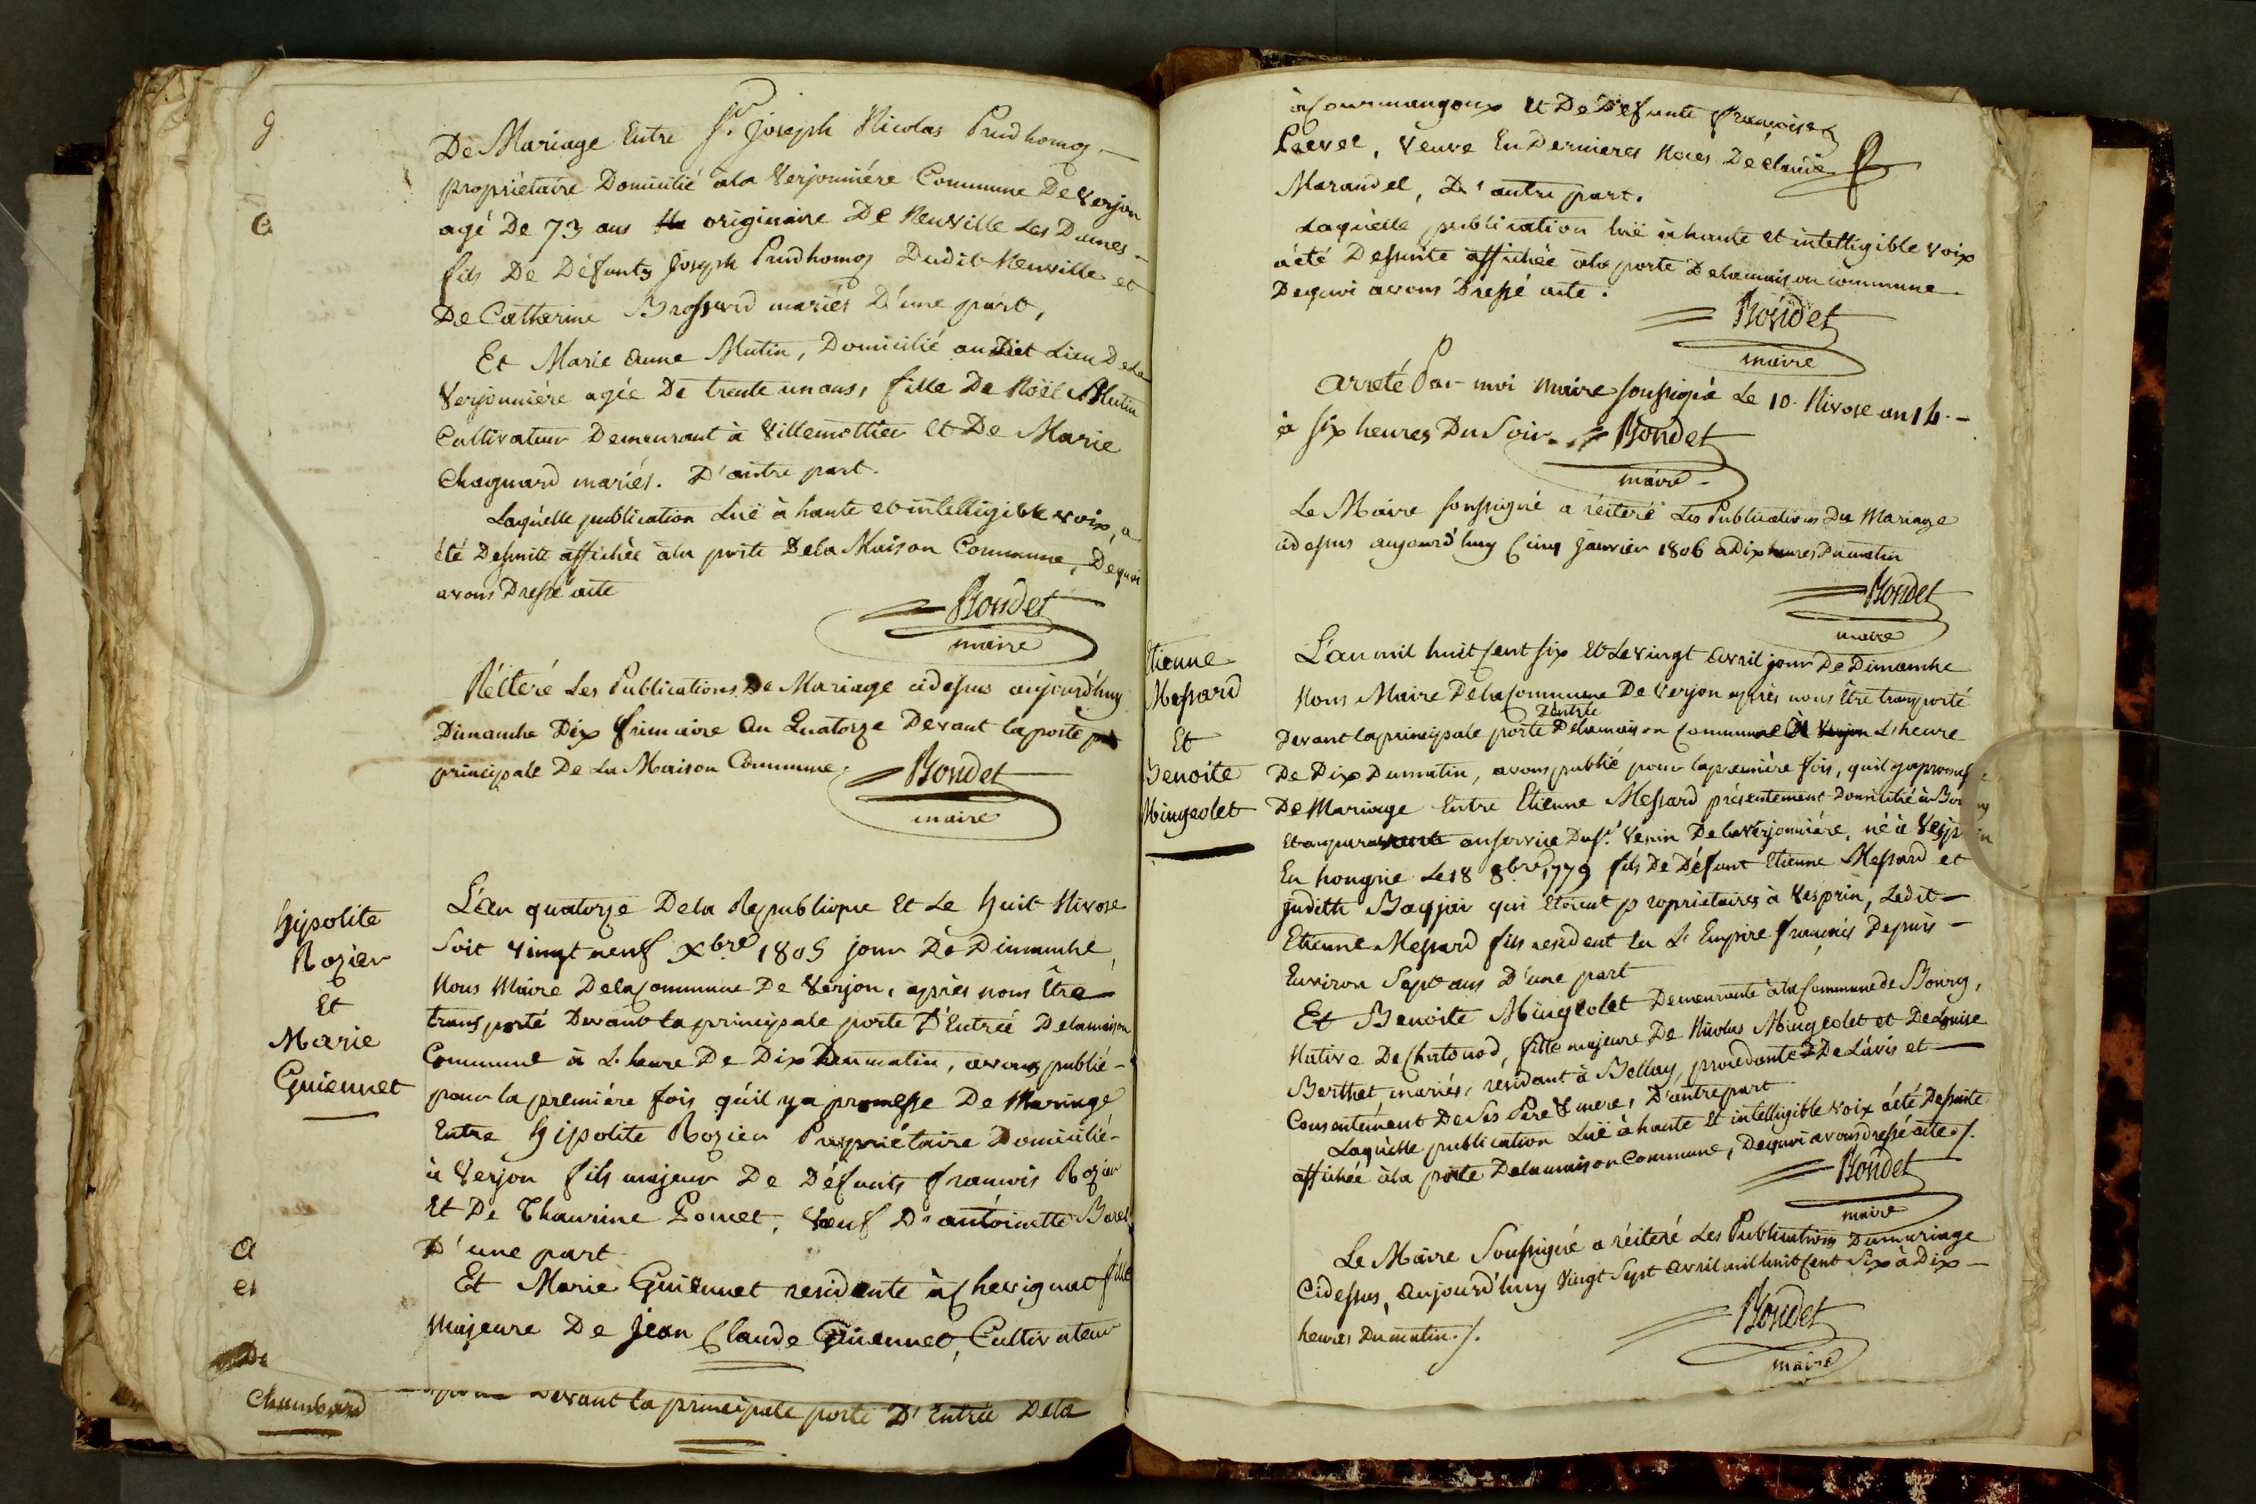 De Mariage Entre Sr. Joseph Nicolas Prudhomg —
propriétaire Domicilié àla Verjonniére Commune De Verjon
agé De 73 ans originaire De Neuville Les Dames –
fils De Défunts Joseph Prudhomg Dudit Neuville et
De Catherine Brossard mariés D'une part,
Et Marie Anne Mutin, Domicilié audit Lieu De La
Verjonniére agée De trente un ans, fille De Noël Mutin
Cultivateur Demeurant à Villemottier Et De Marie
Chagnard mariés. D'autre part.
Laquelle publication Luë à haute et intelligible voix, a
été Desuite affichée àla porte Dela Maison Commune, Dequoi
avons Dressé acte
Bondet
maire
Réiteré Les Publications De Mariage cidessus aujourd'huy
Dimanche Dix frimaire An Quatorze Devant la porte
principale De La Maison Commune.
Bondet
maire
Hipolite
Rozier
Et
Marie
Guiennet
L'an quatorze Dela Republique Et Le huit Nivose
Soit Vingt neuf Xbre 1805 jour De Dimanche,
Nous Maire Dela Commune De Verjon, après nous Être
transporté Devant la principale porte D'Entrée Delamaison
Commune à L'heure De Dix Dumatin, avons publié –
pour la premiére fois qu'il ya promesse De Mariage
Entre Hipolite Rozier Propriétaire Domicilié –
à Verjon fils majeur De Défunts francois Rozier
Et De Thaurine Poncet, Veuf D'antoinette Borel
D'une part
Et Marie Guiennet residente à Chevignat fille
Majeure De Jean Claude Guiennet, Cultivateur
De
Chambard
Devant la principale porte D'Entrée Dela
à Courmangoux Et De Défunte francoise
Pacvet, Veuve En Dernieres Noces De Claude
Marandel, D'autre part.
Laquelle publication luë à haute et intelligible voix
a été Desuite affichée àla porte Delamaison commune –
Dequoi avons Dressé acte.
Bondet
maire
Arreté Par moi Maire soussigné Le 10. Nivose an 14. –
à six heures Du Soir.
Bondet
maire
Le Maire soussigné a réiteré Les Publications Du Mariage
cidessus aujourd'huy Cinq Janvier 1806 à Dix heures Dumatin
Bondet
maire
Etienne
Messard
Et
Benoite
Mingeolet
L'an mil huit Cent Six Et Le vingt Avril jour De Dimanche
Nous Maire Dela Commune De Verjon après nous Être transporté
D'entrée
Devant la principale porte Delamaison Commune L'heure
De Dix Dumatin, avons publié pour la premiére fois, qu'il ya promesse
De Mariage Entre Etienne Messard présentement Domicilié à Bourg
Et auparavant au service Du Sr. Venin Dela Verjonniére, né à Vesprin
En hongrie Le 18 8bre 1779 fils De Défunt Etienne Messard et
Judith Bagjai qui Etoient propriétaires à Vesprin, Ledit –
Etienne Messard fils resident En L'Empire francais Depuis –
Environ Sept ans D'une part
Et Benoite Mingeolet Demeurante àla Commune de Bourg,
Native De Chatonod, fille majeure De Nicolas Mingeolet et De Louise
Berthet mariés, résidant à Bellay, procédante De L'avis et –
Consentement De Ses Pere & mere, D'autre part
Laquelle publication Luë à haute Et intelligible Voix a été Desuite
affichée àla porte Delamaison Commune, Dequoi avons dressé acte ./.
Bondet
maire
Le Maire Soussigné a réiteré Les Publications Dumariage
Cidessus, Aujourd'huy Vingt Sept Avril mil huit Cent Six à Dix –
heures Dumatin ./.
Bondet
maire